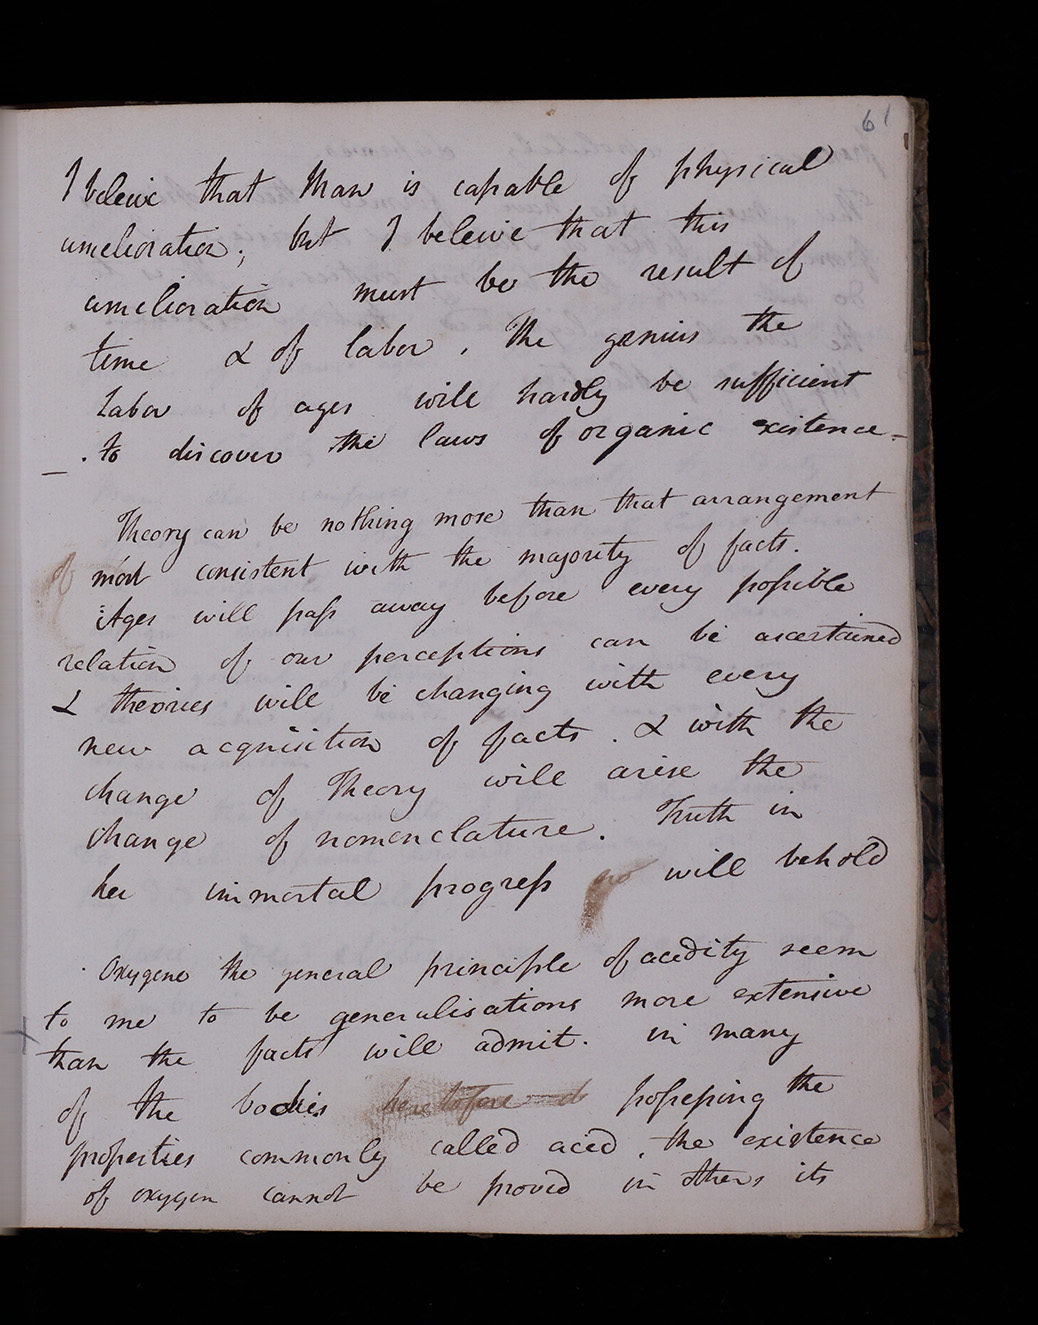 61
I beleive that Man is capable of physical
amelioration; but I beleive that this
amelioration must be the result of
time & of labor. The genius the
labor of ages will hardly be sufficient
to discover the laws of organic existence -
Theory can be nothing more than that arrangement
of most consistent with the majority of facts.
Ages will paſs away before every poſsible
relation of our perceptions can be ascertained
& theories will be changing with every
new acquisition of facts. & with the
change of Theory will arise the
change of nomenclature. Truth in
her immortal progreſs will behold
Oxygene the general principle of acidity seem
to me to be generalisations more extensive
than the facts will admit. in many
of the bodies heretofore poſseſsing the
properties commonly called acid, the existence
of oxygen cannot be proved in others its